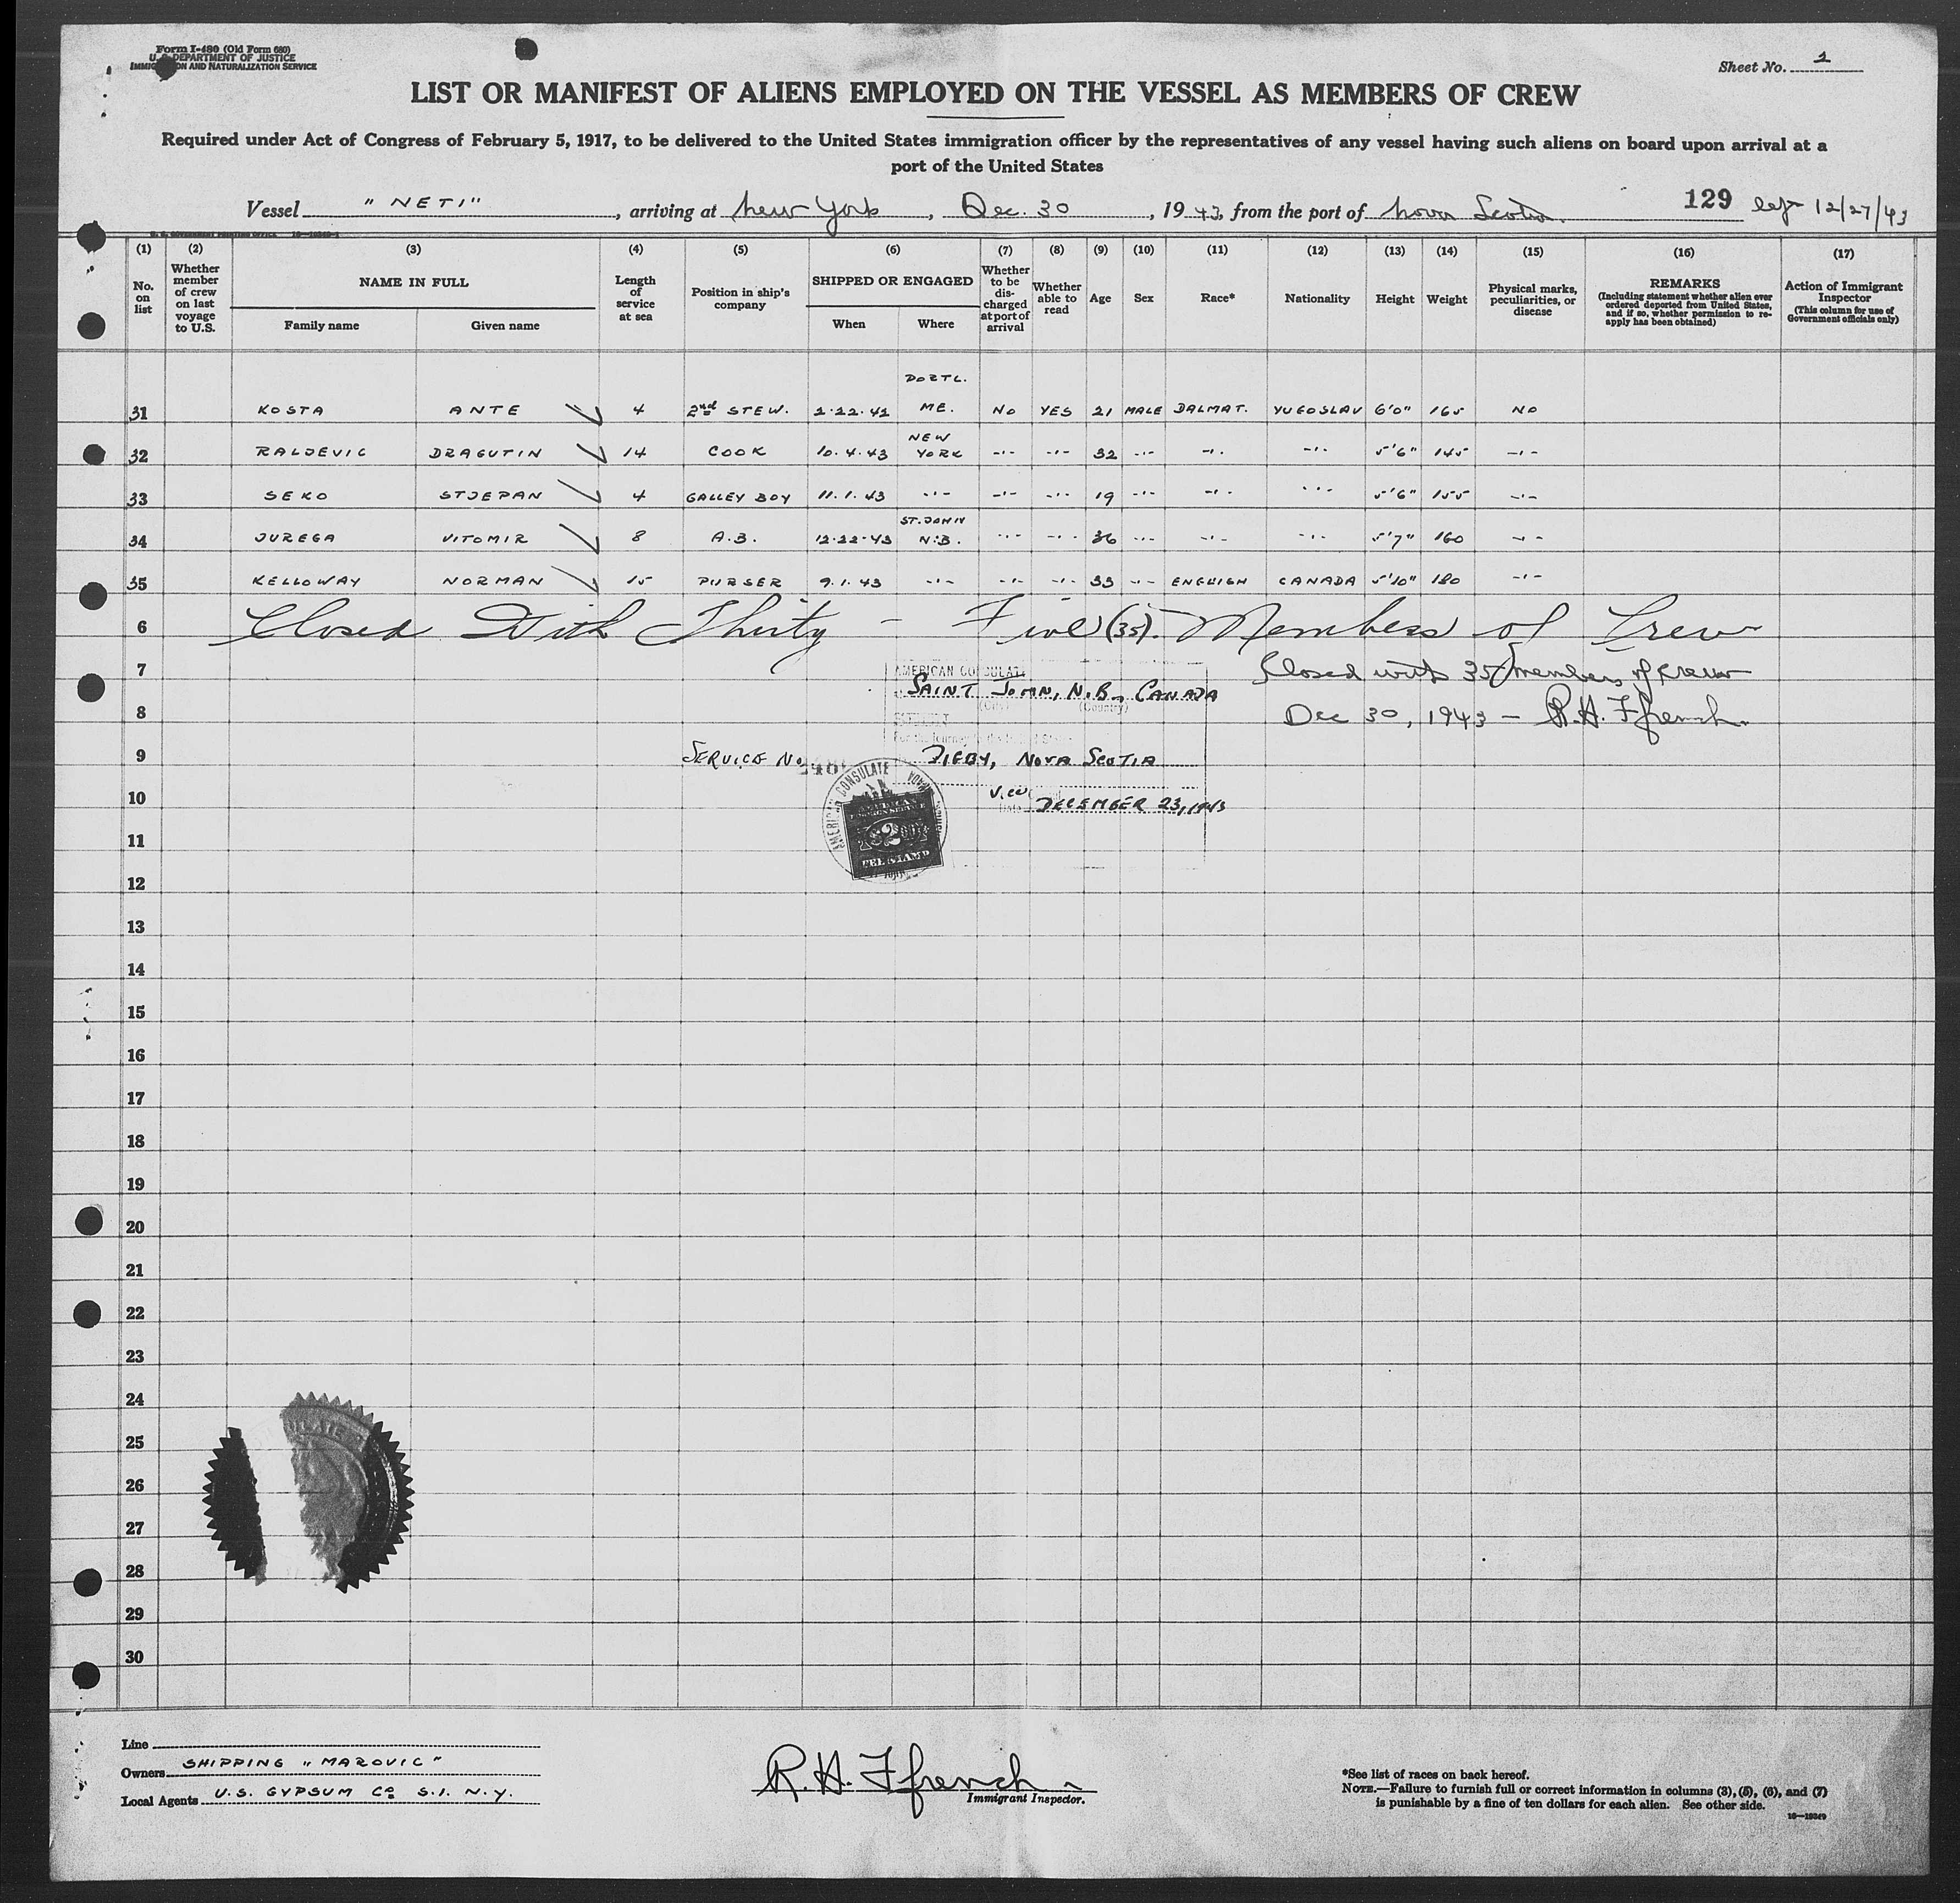 Form I-480 (Old Form 680)
U. S. DEPARTMENT OF JUSTICE
IMMIGRATION AND NATURALIZATION SERVICE
Sheet No. 2
LIST OR MANIFEST OF ALIENS EMPLOYED ON THE VESSEL AS MEMBERS OF CREW
Required under Act of Congress of February 5, 1917, to be delivered to the United States immigration officer by the representatives of any vessel having such aliens on board upon arrival at a
port of the United States
Vessel "NETI", arriving at New York, Dec. 30, 1943, from the port of Nova Scotia. 129 left 12/27/43
(1) (2) (3) (4) (5) (6) (7) (8) (9) (10) (11) (12) (13) (14) (15) (16) (17)
No. on list
Whether member of crew on last voyage to U.S.
NAME IN FULL
Family name
Given name
Length of service at sea
Position in ship's company
SHIPPED OR ENGAGED
When
Where
Whether to be discharged at port of arrival
Whether able to read
Age
Sex
Race*
Nationality
Height
Weight
Physical marks, peculiarities, or disease
REMARKS
(Including statement whether alien ever ordered deported from United States, and if so, whether permission to re-apply has been obtained)
Action of Immigrant Inspector
(This column for use of Government officials only)
31 KOSTA ANTE 4 2nd STEW. 2.22.42 PORTL. ME. NO YES 21 MALE DALMAT. YUGOSLAV 6'0" 165 NO
32 RALJEVIC DRAGUTIN 14 COOK 10.4.43 NEW YORK -"- -"- 32 -"- -"- -"- 5'6" 145 -"-
33 SEKO STJEPAN 4 GALLEY BOY 11.1.43 -"- -"- -"- 19 -"- -"- -"- 5'6" 155 -"-
34 JUREGA VITOMIR 8 A.B. 12.22.43 ST. JOHN N.B. -"- -"- 36 -"- -"- -"- 5'7" 160 -"-
35 KELLOWAY NORMAN 15 PURSER 9.1.43 -"- -"- -"- 33 -"- ENGLISH CANADA 5'10" 180 -"-
6 Closed With Thirty - Five (35). Members of Crew
7 AMERICAN CONSULATE Closed with 35 members of crew
SAINT JOHN, N.B., CANADA
(City) (Country)
8 Dec 30, 1943 - R.H. Ffrench
9 SERVICE No. DIGBY, NOVA SCOTIA
10 DECEMBER 23, 1943
AMERICAN CONSULATE
AMERICAN
$2
FEE STAMP
11
12
13
14
15
16
17
18
19
20
21
22
23
24
25
26
27
28
29
30
Line
Owners SHIPPING "MAROVIC"
Local Agents U.S. GYPSUM Co S.I. N.Y.
R. H. Ffrench
Immigrant Inspector.
*See list of races on back hereof.
NOTE.—Failure to furnish full or correct information in columns (3), (5), (6), and (7)
is punishable by a fine of ten dollars for each alien. See other side.
16—19349